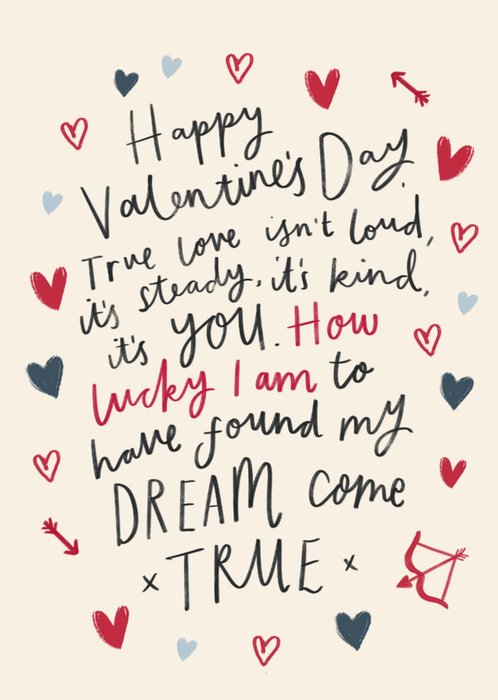 Happy
Valentine's Day.
True love isn't loud,
it's steady, it's kind,
it's YOU. How
lucky I am to
have found my
DREAM come
x TRUE x